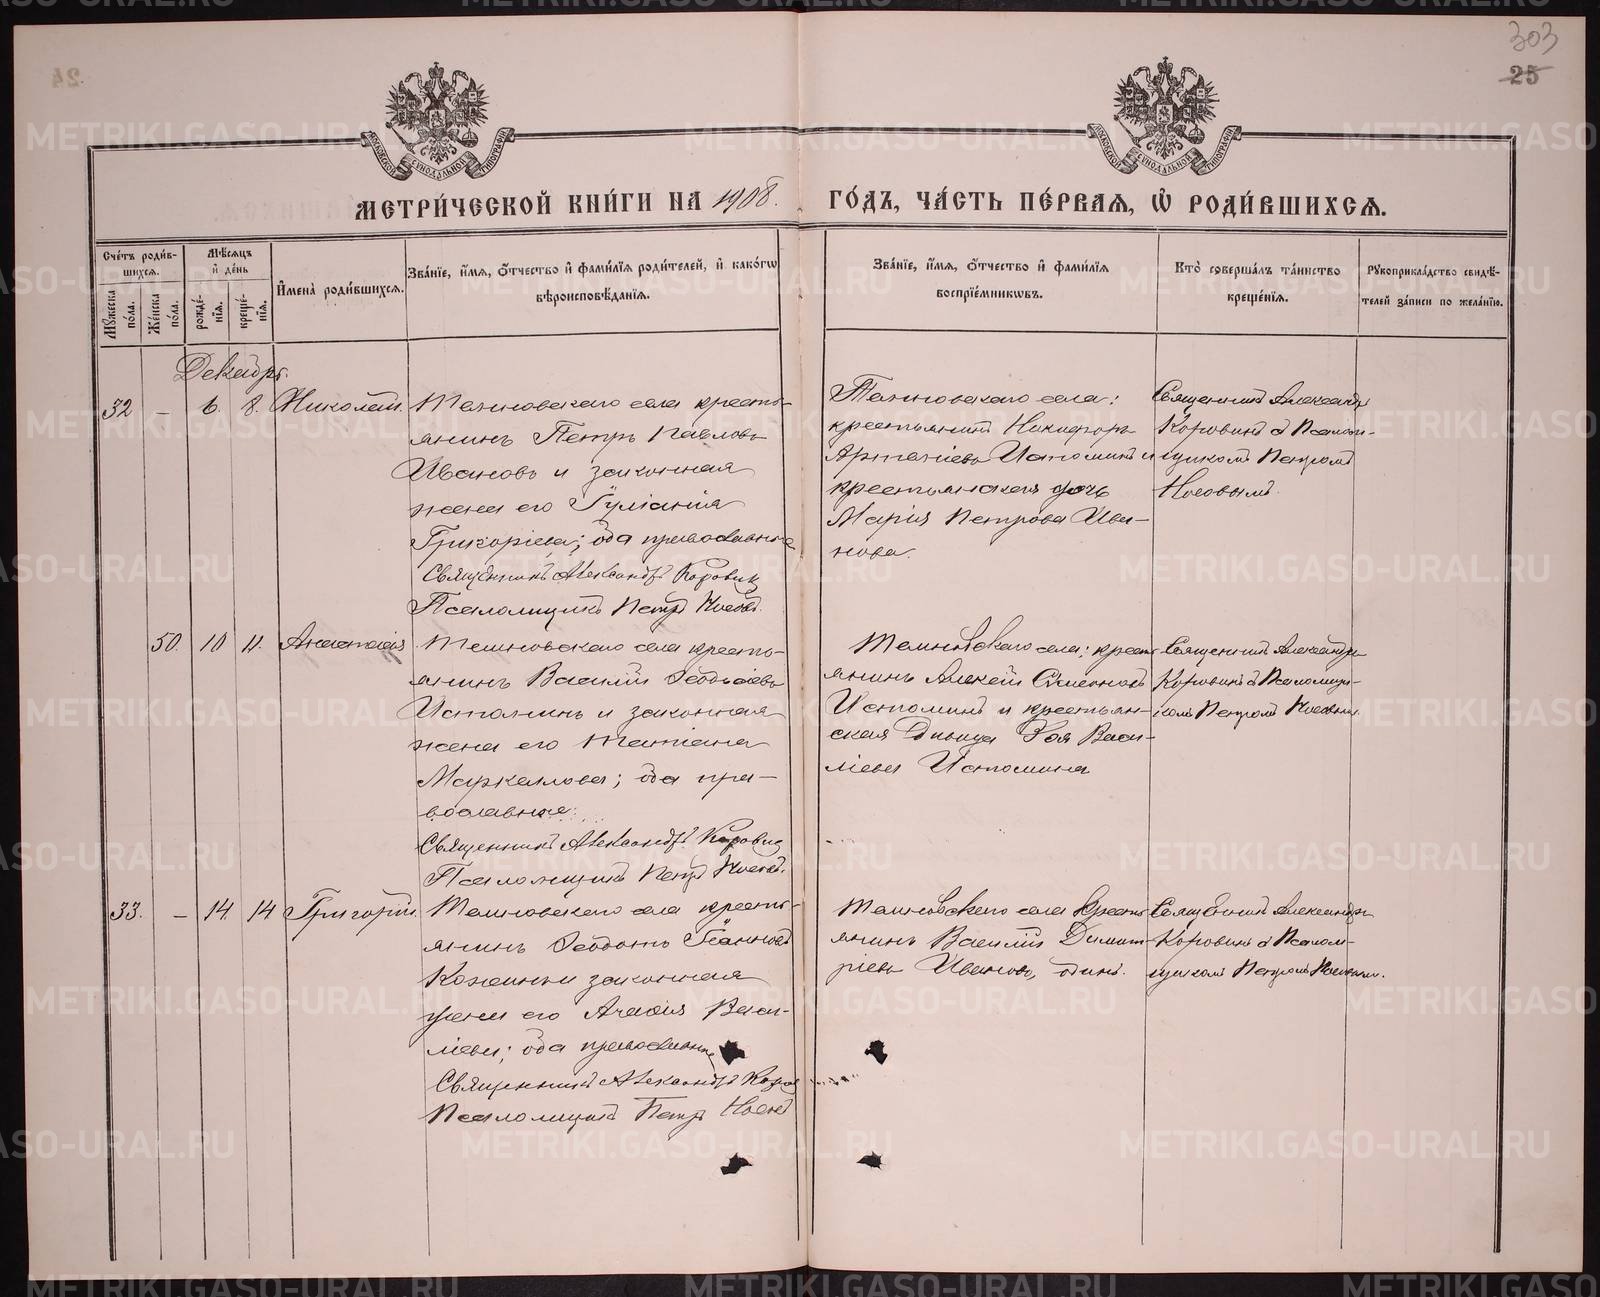 303
25
МЕТРИ́ЧЕСКОЙ КНИ́ГИ НА 1908. ГО́ДЪ, ЧА́СТЬ ПЕ́РВАЯ, Ѡ РОДИ́ВШИХСЯ.
Сче́тъ роди́в-
шихся.
Му́жеска по́ла.
Же́нска по́ла.
Мѣ́сяцъ
и҆ де́нь
рожде́-
нїѧ.
креще́-
нїѧ.
И҆мена̀ роди́вшихся.
Зва́нїе, и҆́мя, ѻ҆́тчество и҆ фами́лїя роди́телей, и҆ како́гѡ
вѣроисповѣ́данїя.
Зва́нїе, и҆́мя, ѻ҆́тчество и҆ фами́лїя
воспрїе́мникѡвъ.
Кто̀ соверша́лъ та́инство
креще́нїя.
Рꙋкоприкла́дство свидѣ́-
телей за́писи по жела́нїю.
Декабрь.
32 — 6. 8. Николай.
села кресть-
янинъ Петръ Павловъ
Ивановъ и законная
жена его
Григорiева; оба православные
Священникъ Александръ Коровинъ
Псаломщикъ Петръ Носовъ.
села:
крестьянинъ Никифоръ
Истоминъ и
крестьянская дочь
Марiя Петрова Ива-
нова.
Священникъ Александръ
Коровинъ съ Псалом-
щикомъ Петромъ
Носовымъ.
50. 10 11. Анастасiя
села кресть-
янинъ Василiй
Истоминъ и законная
жена его Татiана
Маркеллова; оба пра-
вославные.
Священникъ Александръ Коровинъ
Псаломщикъ Петръ Носовъ.
села; кресть-
янинъ Алексѣй Симеоновъ
Истоминъ и крестьян-
ская дѣвица Зоя Васи-
лiева Истомина
Священникъ Александръ
Коровинъ съ Псаломщи-
комъ Петромъ Носовымъ.
33. — 14 14 Григорiй.
села кресть-
янинъ Ѳеодотъ Iоанновъ
и законная
жена его Агафiя Васи-
лiева; оба православные
Священникъ Александръ
Псаломщикъ Петръ Носовъ
села кресть-
янинъ Василiй Димит-
рiевъ Ивановъ, одинъ.
Священникъ Александръ
Коровинъ съ Псалом-
щикомъ Петромъ Носовымъ.
METRIKI.GASO-URAL.RU